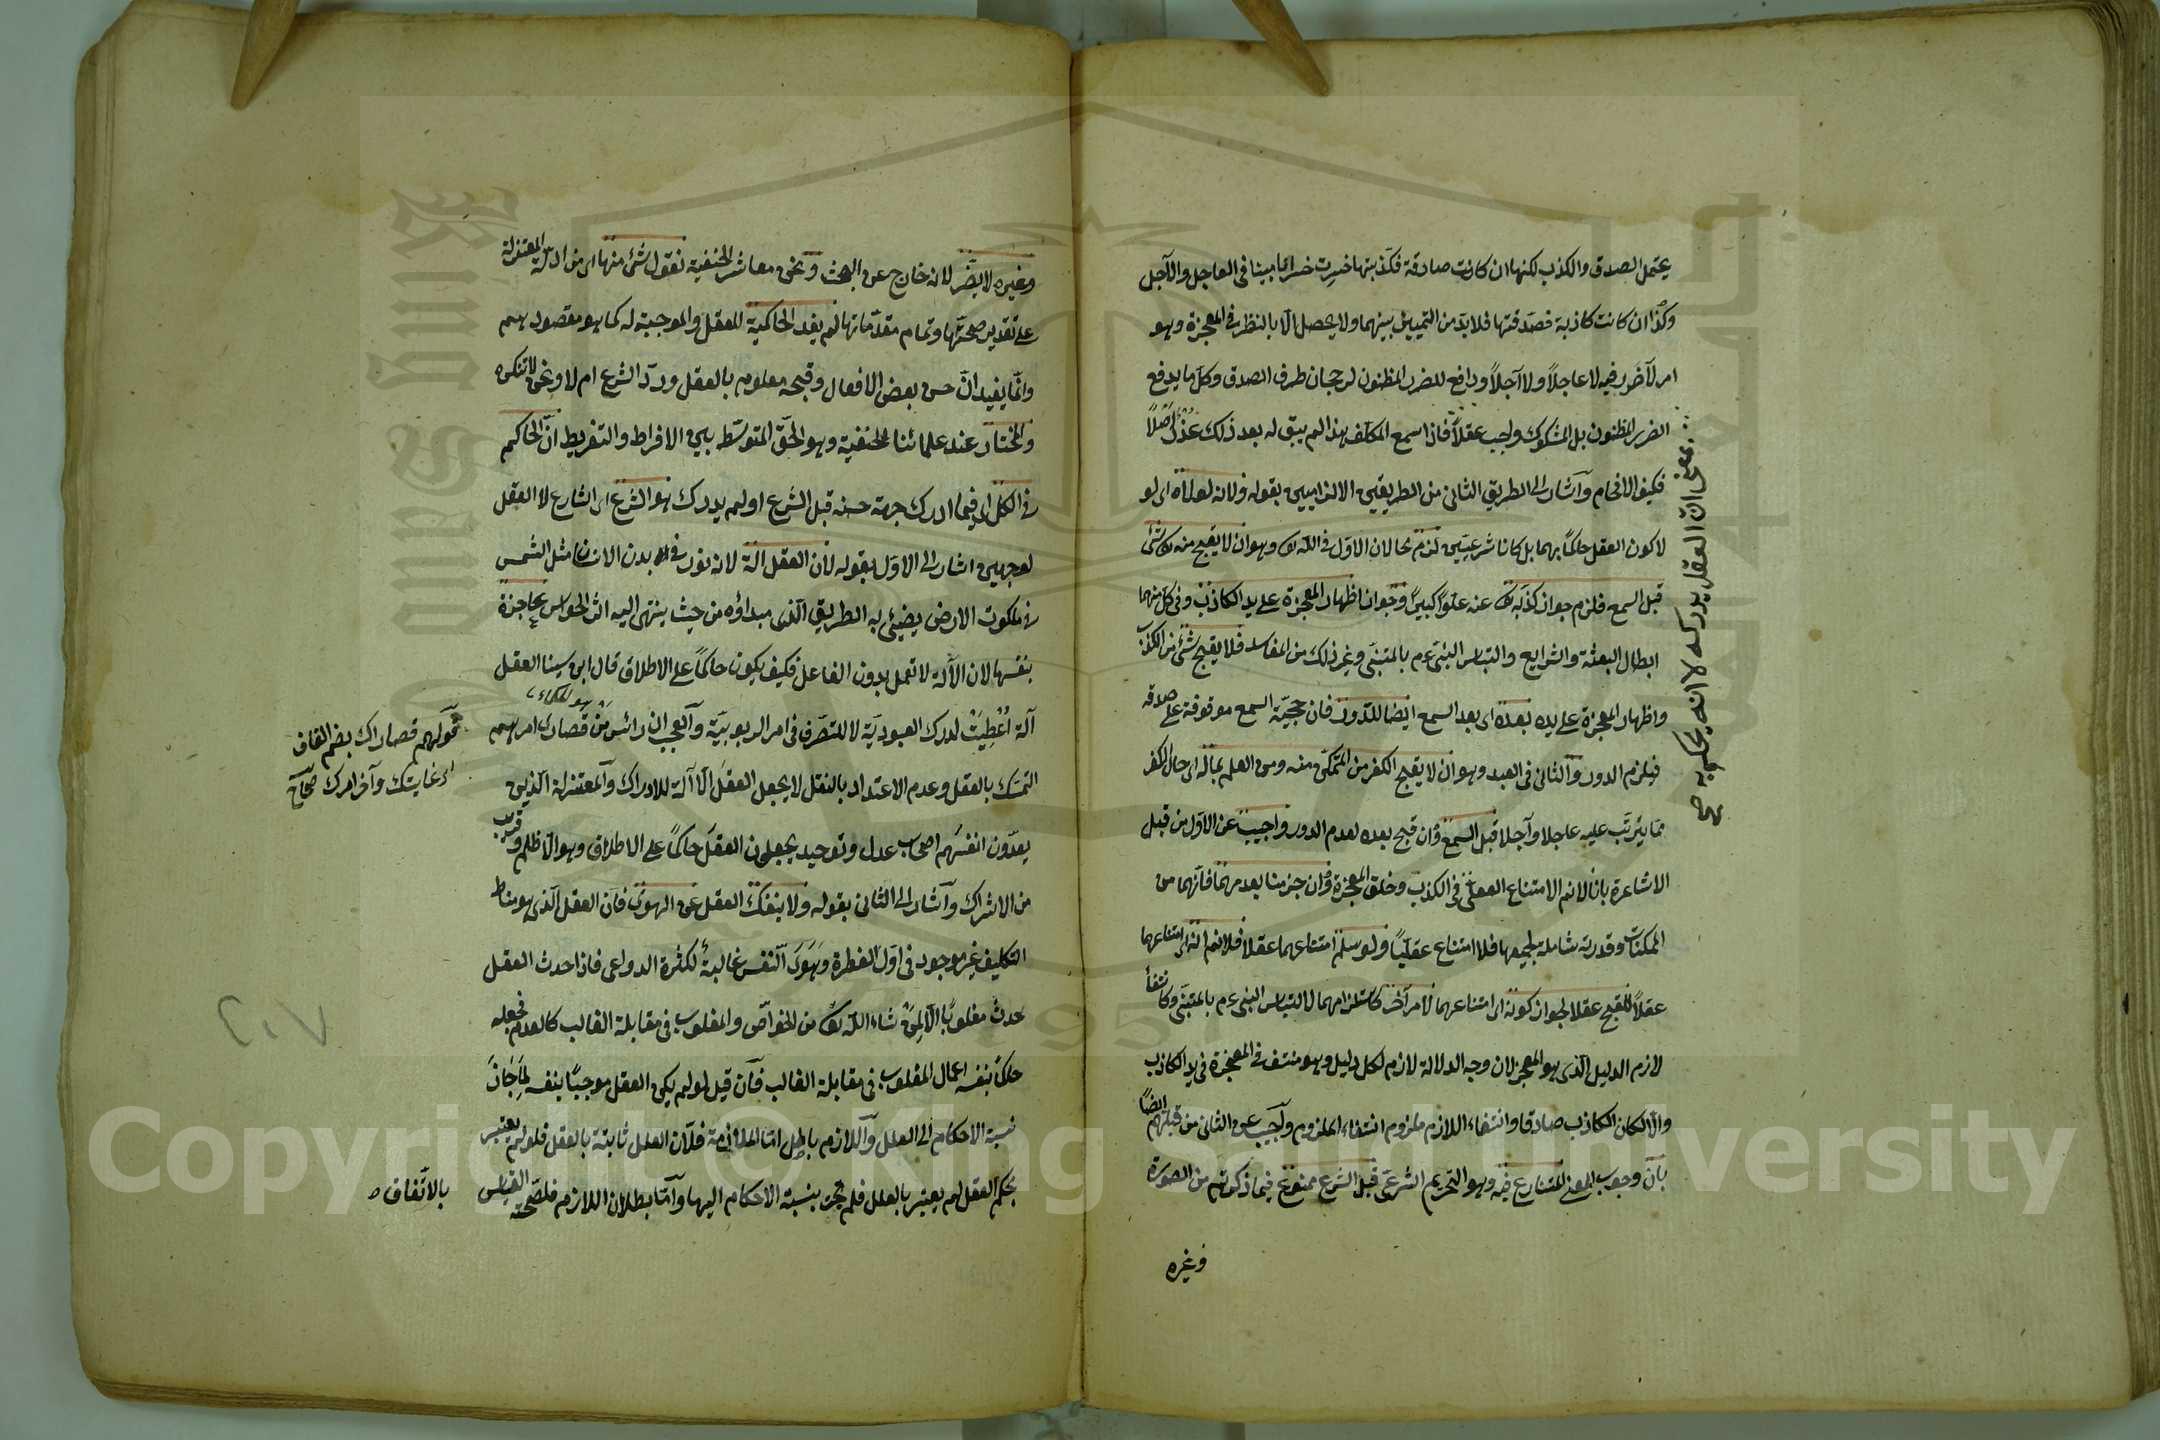 يحتمل الصدق والكذب لكنها ان كانت صادقة فكذبتها خسرت خسرانا مبينا في العاجل والآجل
وكذا ان كانت كاذبة فصدقتها فلا بد من التمييز بينهما ولا يحصل الا بالنظر في المعجزة وهو
امر لا ضرر فيه لا عاجلاً ولا آجلاً ودافع للضرر المظنون لرجحان طرف الصدق وكل ما يدفع
الضرر المظنون بل المشكوك واجب عقلاً فاذا سمع المكلف هذا لم يبق له بعد ذلك عذر اصلاً
فكيف الافحام وأشار الى الطريق الثاني من الطريقين الالزاميين بقوله ولانه لولاه اى لو
لا كون العقل حاكماً بهما بل كانا شرعيين لزم محالان الاول في الله تع وهو ان لا يقبح منه تع شئ
قبل السمع فلزم جواز كذبه تع عنه علوا كبيراً وجواز اظهار المعجزة على يد الكاذب وفي كل منهما
ابطال البعثة والشرايع والتباس النبى ءم بالمتنبى وغير ذلك من المفاسد فلا يقبح شئ من الكذب
واظهار المعجزة على يده بعده اى بعد السمع ايضا للدور فان حجية السمع موقوفة على صدقه
فيلزم الدور والثاني في العبد وهو ان لا يقبح الكفر من المتمكن منه ومن العلم بماله اى حال الكفر
مما يترتب عليه عاجلا وآجلا قبل السمع وان قبح بعده لعدم الدور واجيب عن الاول من قبل
الاشاعرة بانا لا نم الامتناع العقلي في الكذب وخلق المعجزة وان جزمنا بعدمهما فانهما من
الممكنات وقدرته شاملة لجميعها فلا امتناع عقلياً ولو سلم امتناعهما عقلا فلا نم انه اى امتناعهما
عقلاً للقبح عقلا لجواز كونه اى امتناعهما لامر آخر كاستلزامهما لالتباس النبى ءم بالمتنبى وكانتفاء
لازم الدليل الذى هو المعجز لان وجه الدلالة لازم لكل دليل وهو منتف في المعجزة في يد الكاذب
والا لكان الكاذب صادقا وانتفاء اللازم ملزوم انتفاء الملزوم وأجيب عن الثاني من قبلهم ايضاً
بان وجوب المعنى المتنازع فيه وهو التحريم الشرعي قبل الشرع ممنوع فيما ذكرتم من الصورة
وغيره
بمعنى ان العقل يدركه لا انه يحكم به
وغيره لا يضر لانه خارج عن البحث ونحن معاشر الحنفية نقول شئ منها اى من ادلة المعتزلة
على تقدير صحتها وتمام مقدماتها لم يفد الحاكمية للعقل والموجبة له كما هو مقصودهم
وانما يفيد ان حسن بعض الافعال وقبحه معلوم بالعقل ورد الشرع ام لا ونحن لا ننكره
والمختار عند علمائنا الحنفية وهو الحق المتوسط بين الافراط والتفريط ان الحاكم
في الكل اى فيما ادرك جهة حسنه قبل الشرع او لم يدرك هو الشرع اى الشارع لا العقل
لوجهين اشار الى الاول بقوله لان العقل آلة لانه نور في بدن الانسان مثل الشمس
في ملكوت الارض يضيئ به الطريق الذى مبداؤه من حيث ينتهى اليه اثر الحواس عاجزة
بنفسها لان الآلة لا تعمل بدون الفاعل فكيف يكون حاكماً على الاطلاق قال ابن سينا العقل
آلة اعطيت لدرك العبودية لا للتصرف في امر الربوبية والعجب ان رائس من قصارى امرهم
هو الحكماء
التمسك بالعقل وعدم الاعتداد بالنقل لا يجعل العقل الا آلة للادراك والمعتزلة الذين
يعدون انفسهم اصحاب عدل وتوحيد يجعلون العقل حاكماً على الاطلاق وهو الا ظلم وقريب
من الاشراك وأشار الى الثاني بقوله ولا ينفك العقل عن الهوى فان العقل الذى هو مناط
التكليف غير موجود في اول الفطرة وهوى النفس غالبة لكثرة الدواعى فاذا حدث العقل
حدث مغلوباً الا لمن شاء الله تع من الخواص والمغلوب في مقابلة الغالب كالعدم فجعله
حاكماً بنفسه اعمال المغلوب في مقابلة الغالب فان قيل لو لم يكن العقل موجباً بنفسه لما جاز
نسبة الاحكام الى العلل واللازم باطل اما الملازمة فلان العلل ثابتة بالعقل فلو لم يعتبر
بحكم العقل لم يعتبر بالعلل فلم تجز بنسبة الاحكام اليها وأما بطلان اللازم فلصحة القياس
قولهم قصاراك بضم القاف
اى غايتك وآخر امرك صحاح
بالاتفاق